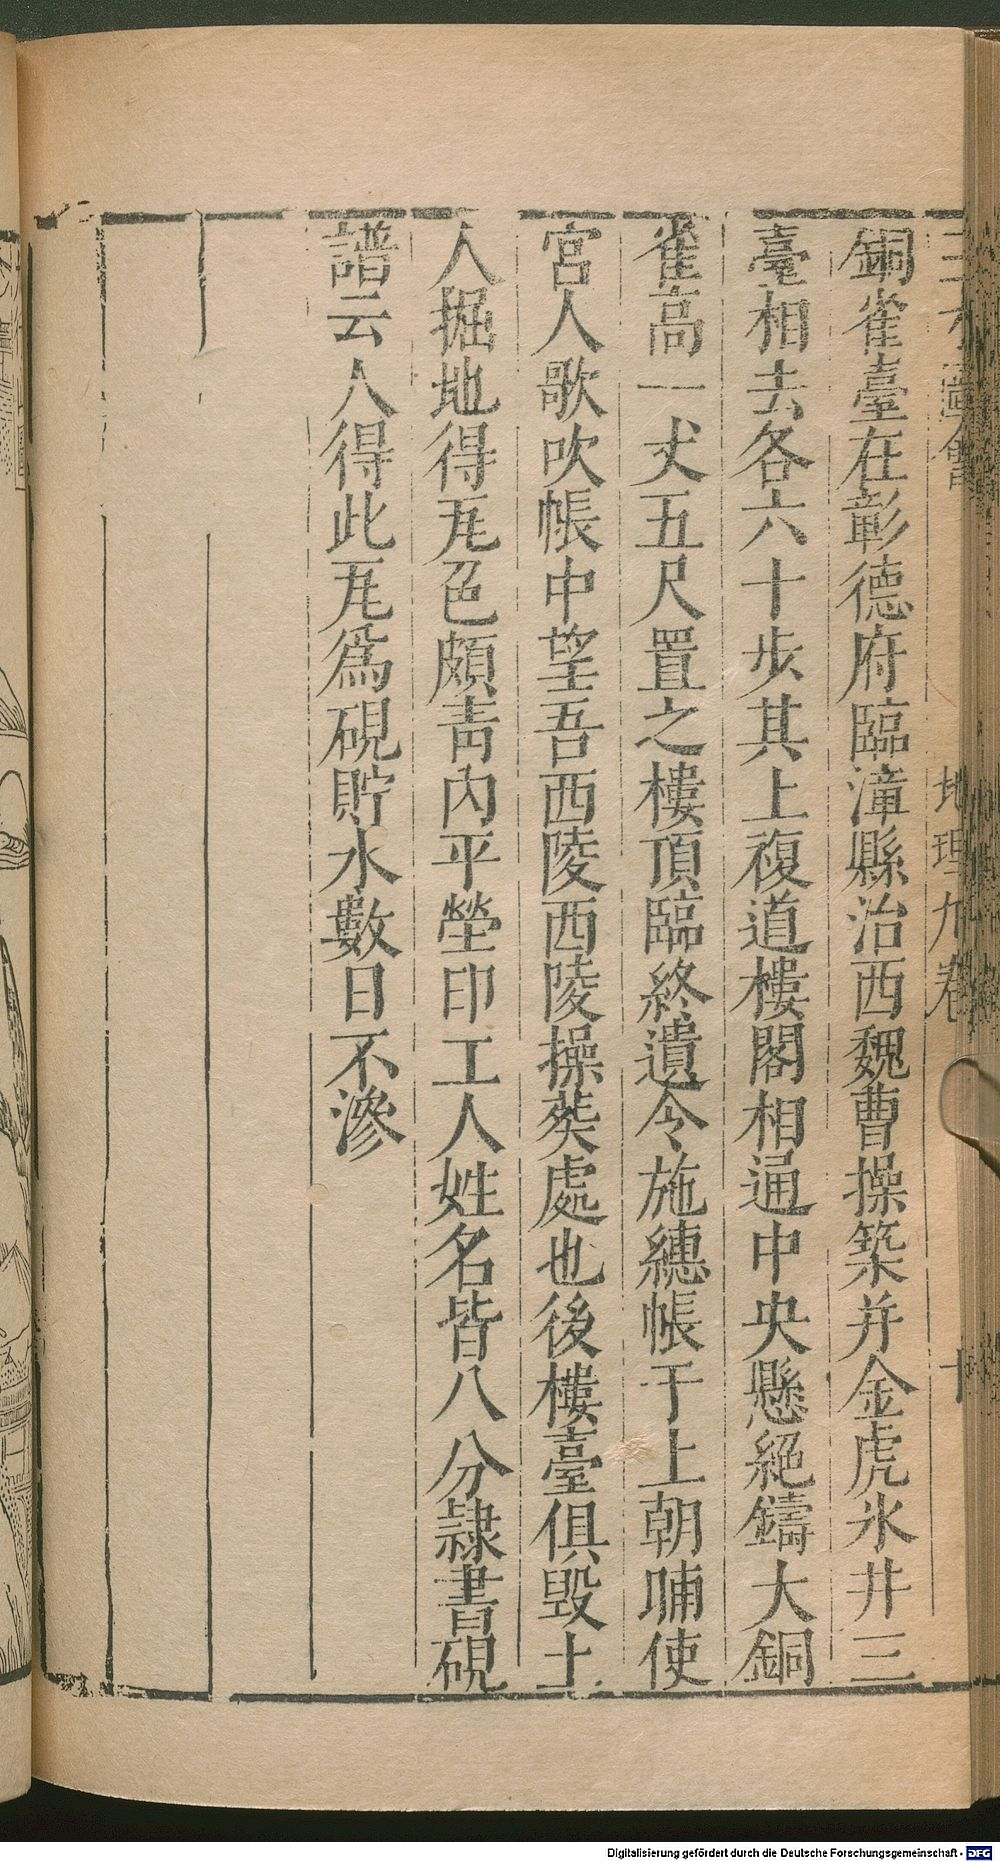 三才圖會
地理九卷
十
銅雀臺在彰德府臨漳縣治西魏曹操築并金虎氷井三
臺相去各六十歩其上複道樓閣相通中央懸絕鑄大銅
雀高一丈五尺置之樓頂臨終遺令施繐帳于上朝晡使
宮人歌吹帳中望吾西陵西陵操葬處也後樓臺俱毀土
人掘地得瓦色頗青內平瑩印工人姓名皆八分隷書硯
譜云人得此瓦爲硯貯水數日不滲
Digitalisierung gefördert durch die Deutsche Forschungsgemeinschaft - DFG